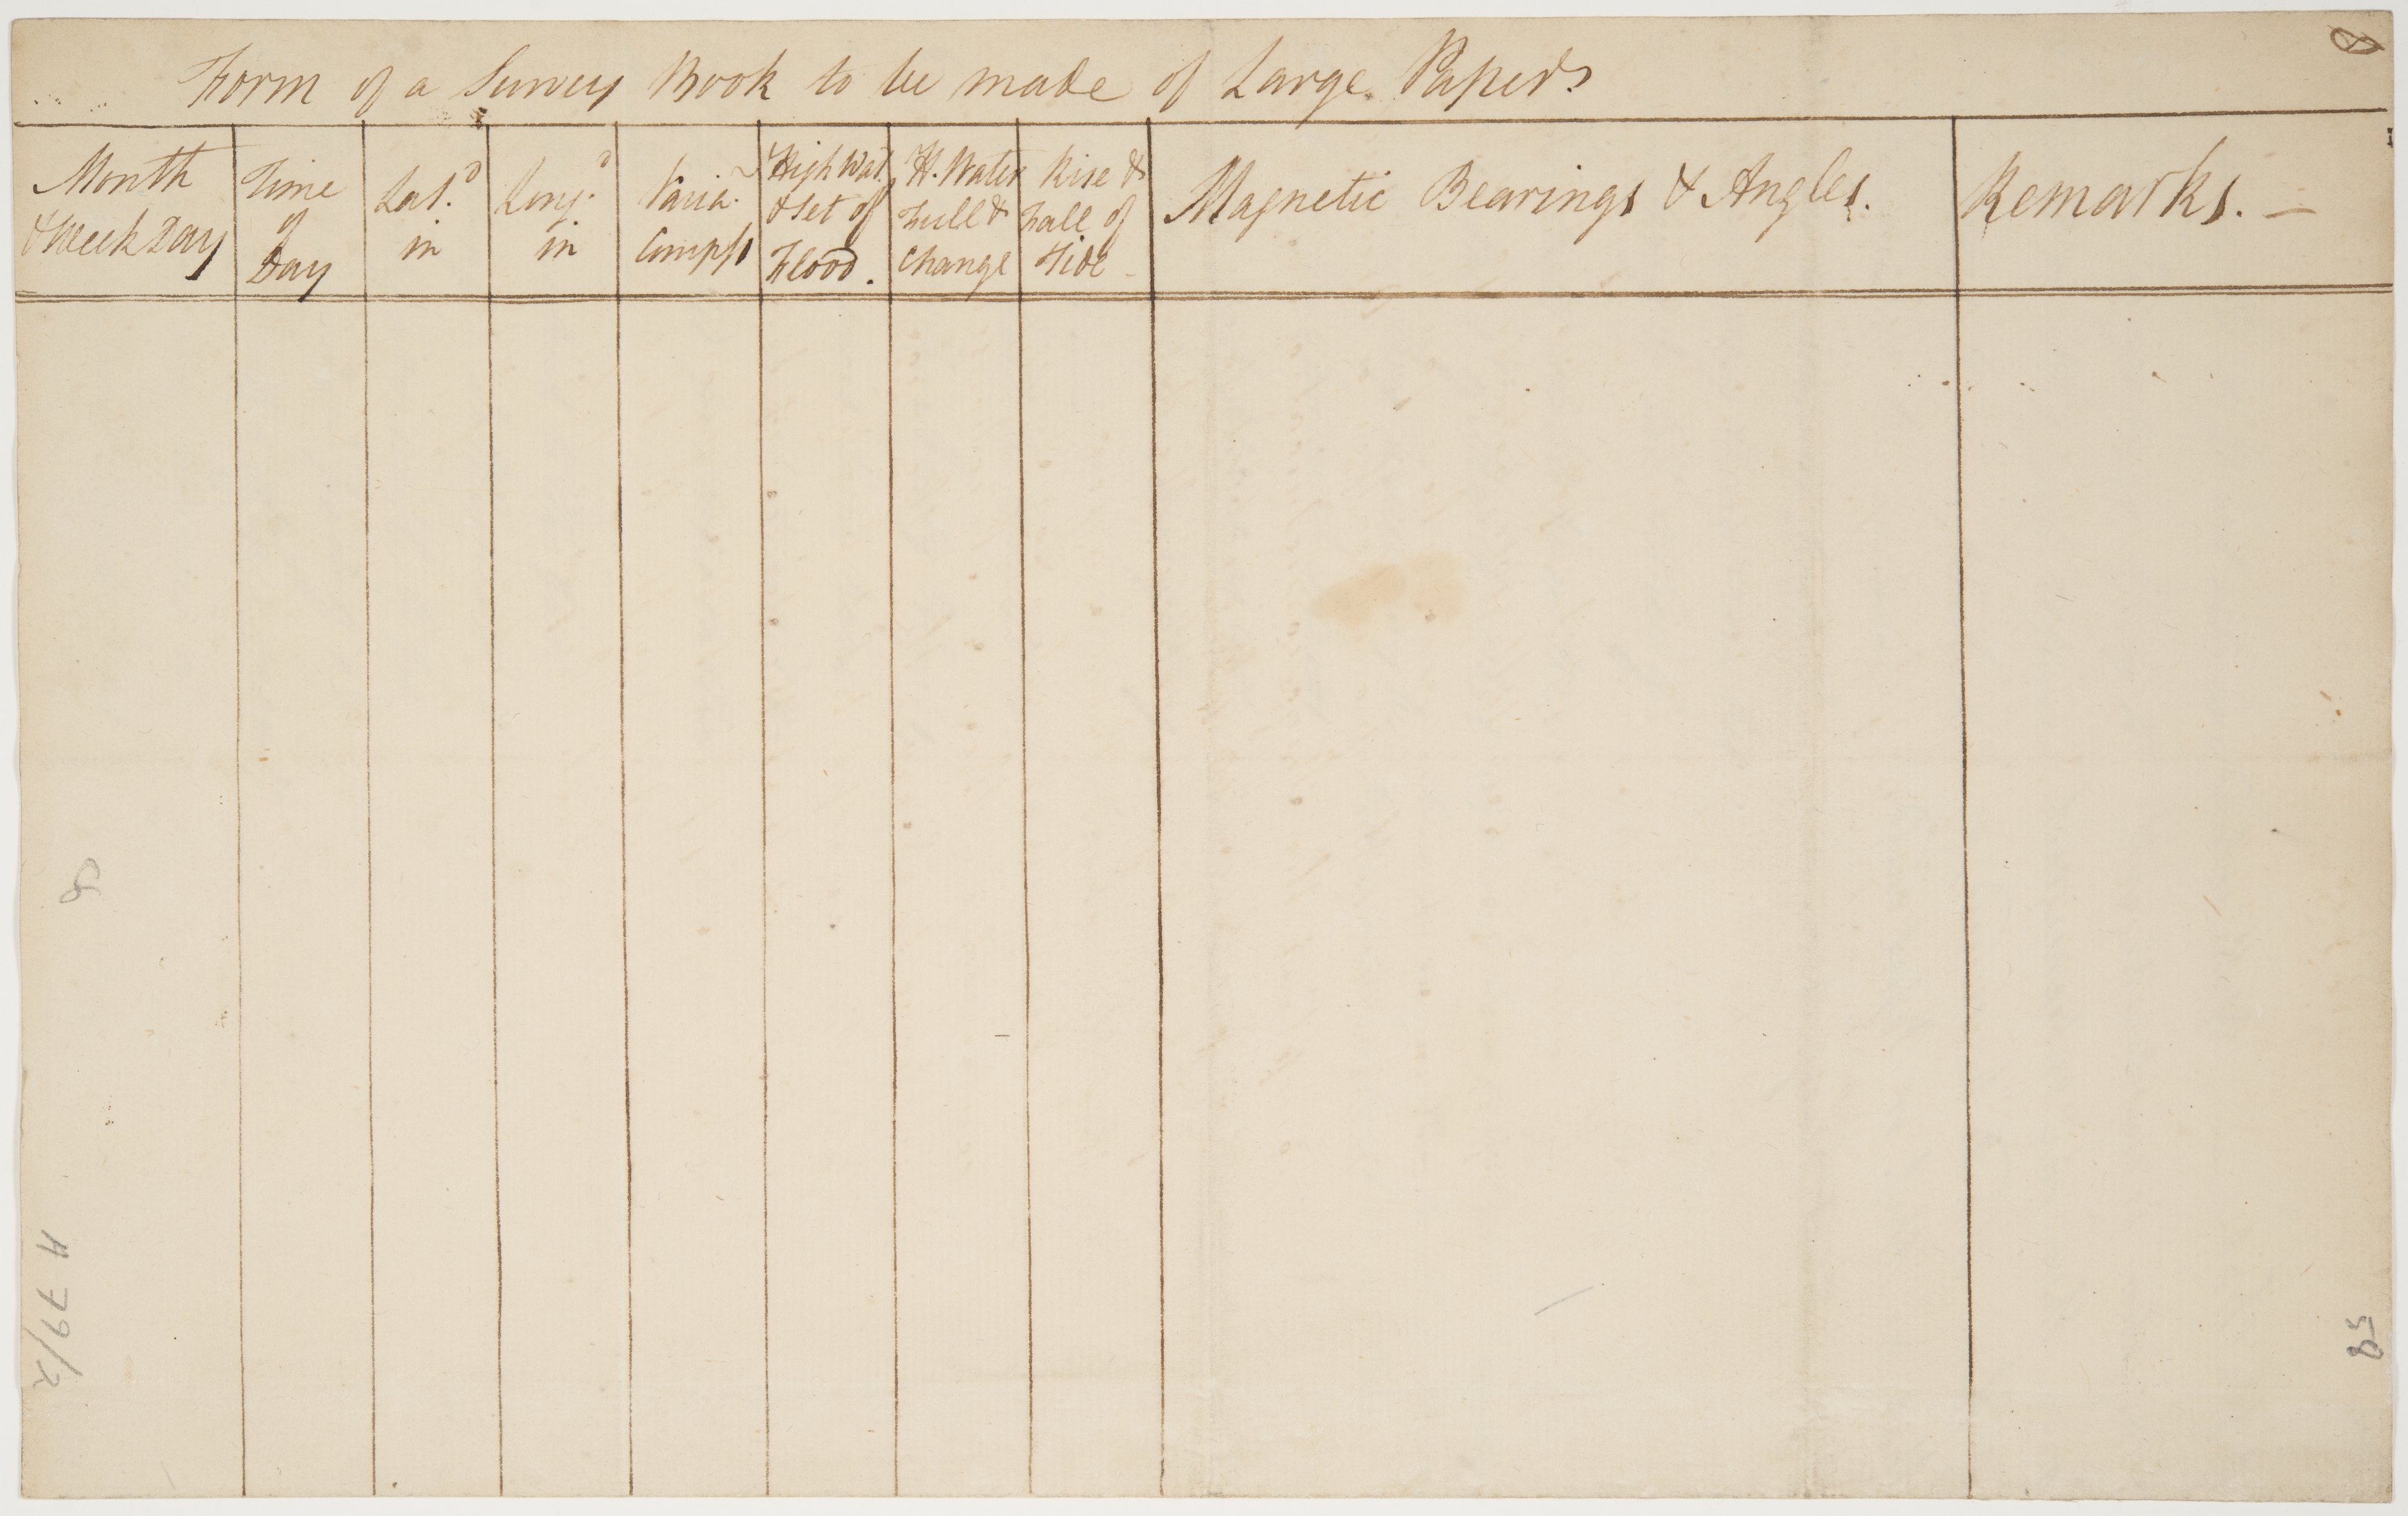 Form of a Survey Book to be made of Large Papers
Month
& Week Day
Time
of
Day
Lat.d
in
Long.d
in
Varia.n
Compss
High Wat.
& Set of
Flood.
H. Water
Full &
Change
Rise &
Fall of
Tide
Magnetic Bearings & Angles.
Remarks. —
8
H 79/2
85